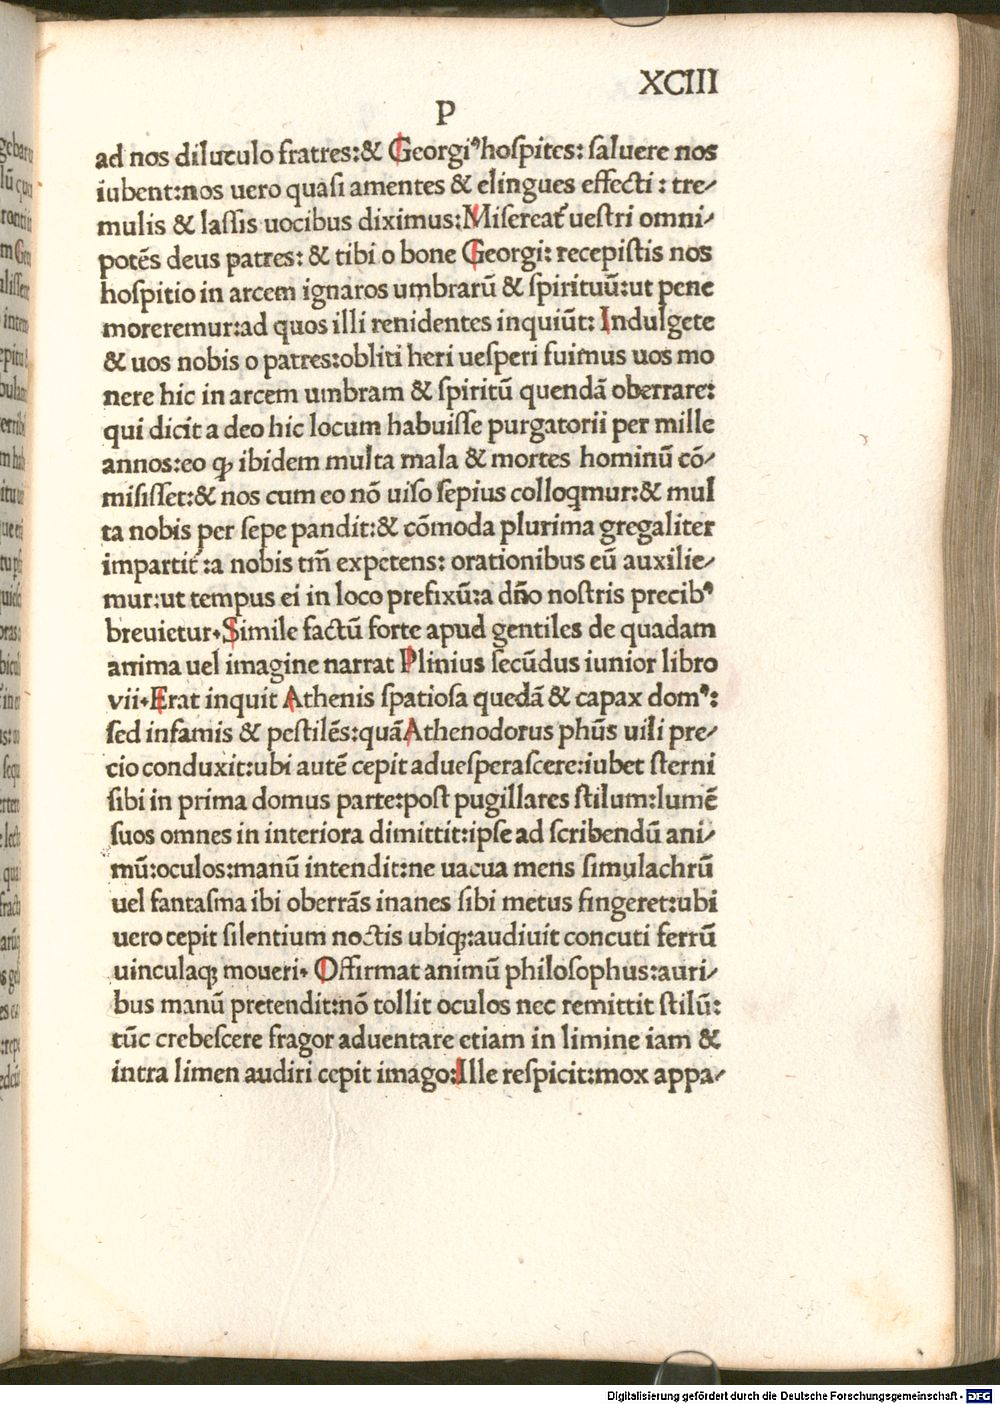 XCIII
P
ad nos diluculo fratres:& Georgiꝰ hoſpites: ſaluere nos
iubent:nos uero quaſi amentes & elingues effecti : tre⸗
mulis & laſſis uocibus diximus:Miſereat᷑ ueſtri omni⸗
potẽs deus patres: & tibi o bone Georgi: recepiſtis nos
hoſpitio in arcem ignaros umbrarũ & ſpirituũ:ut pene
moreremur:ad quos illi renidentes inquiũt: Indulgete
& uos nobis o patres:obliti heri ueſperi fuimus uos mo
nere hic in arcem umbram & ſpiritũ quendã oberrare:
qui dicit a deo hic locum habuiſſe purgatorii per mille
annos:eo ꝙ ibidem multa mala & mortes hominũ cõ⸗
miſiſſet:& nos cum eo nõ uiſo ſepius colloqmur:& mul
ta nobis per ſepe pandit:& cõmoda plurima gregaliter
impartit᷑ :a nobis tm̃ expetens: orationibus eũ auxilie⸗
mur:ut tempus ei in loco prefixũ:a dño noſtris precibꝰ
breuietur.Simile factũ forte apud gentiles de quadam
anima uel imagine narrat Plinius ſecũdus iunior libro
vii.Erat inquit Athenis ſpatioſa quedã & capax domꝰ:
ſed infamis & peſtilẽs:quã Athenodorus phũs uili pre⸗
cio conduxit:ubi autẽ cepit adueſperaſcere:iubet ſterni
ſibi in prima domus parte:poſt pugillares ſtilum:lumẽ
ſuos omnes in interiora dimittit:ipſe ad ſcribendũ ani⸗
mũ:oculos:manũ intendit:ne uacua mens ſimulachrũ
uel fantaſma ibi oberrãs inanes ſibi metus fingeret:ubi
uero cepit ſilentium noctis ubiqꝫ:audiuit concuti ferrũ
uinculaqꝫ moueri. Offirmat animũ philoſophus:auri⸗
bus manũ pretendit:nõ tollit oculos nec remittit ſtilũ:
tũc crebeſcere fragor aduentare etiam in limine iam &
intra limen audiri cepit imago:Ille reſpicit:mox appa⸗
Digitalisierung gefördert durch die Deutsche Forschungsgemeinschaft - DFG